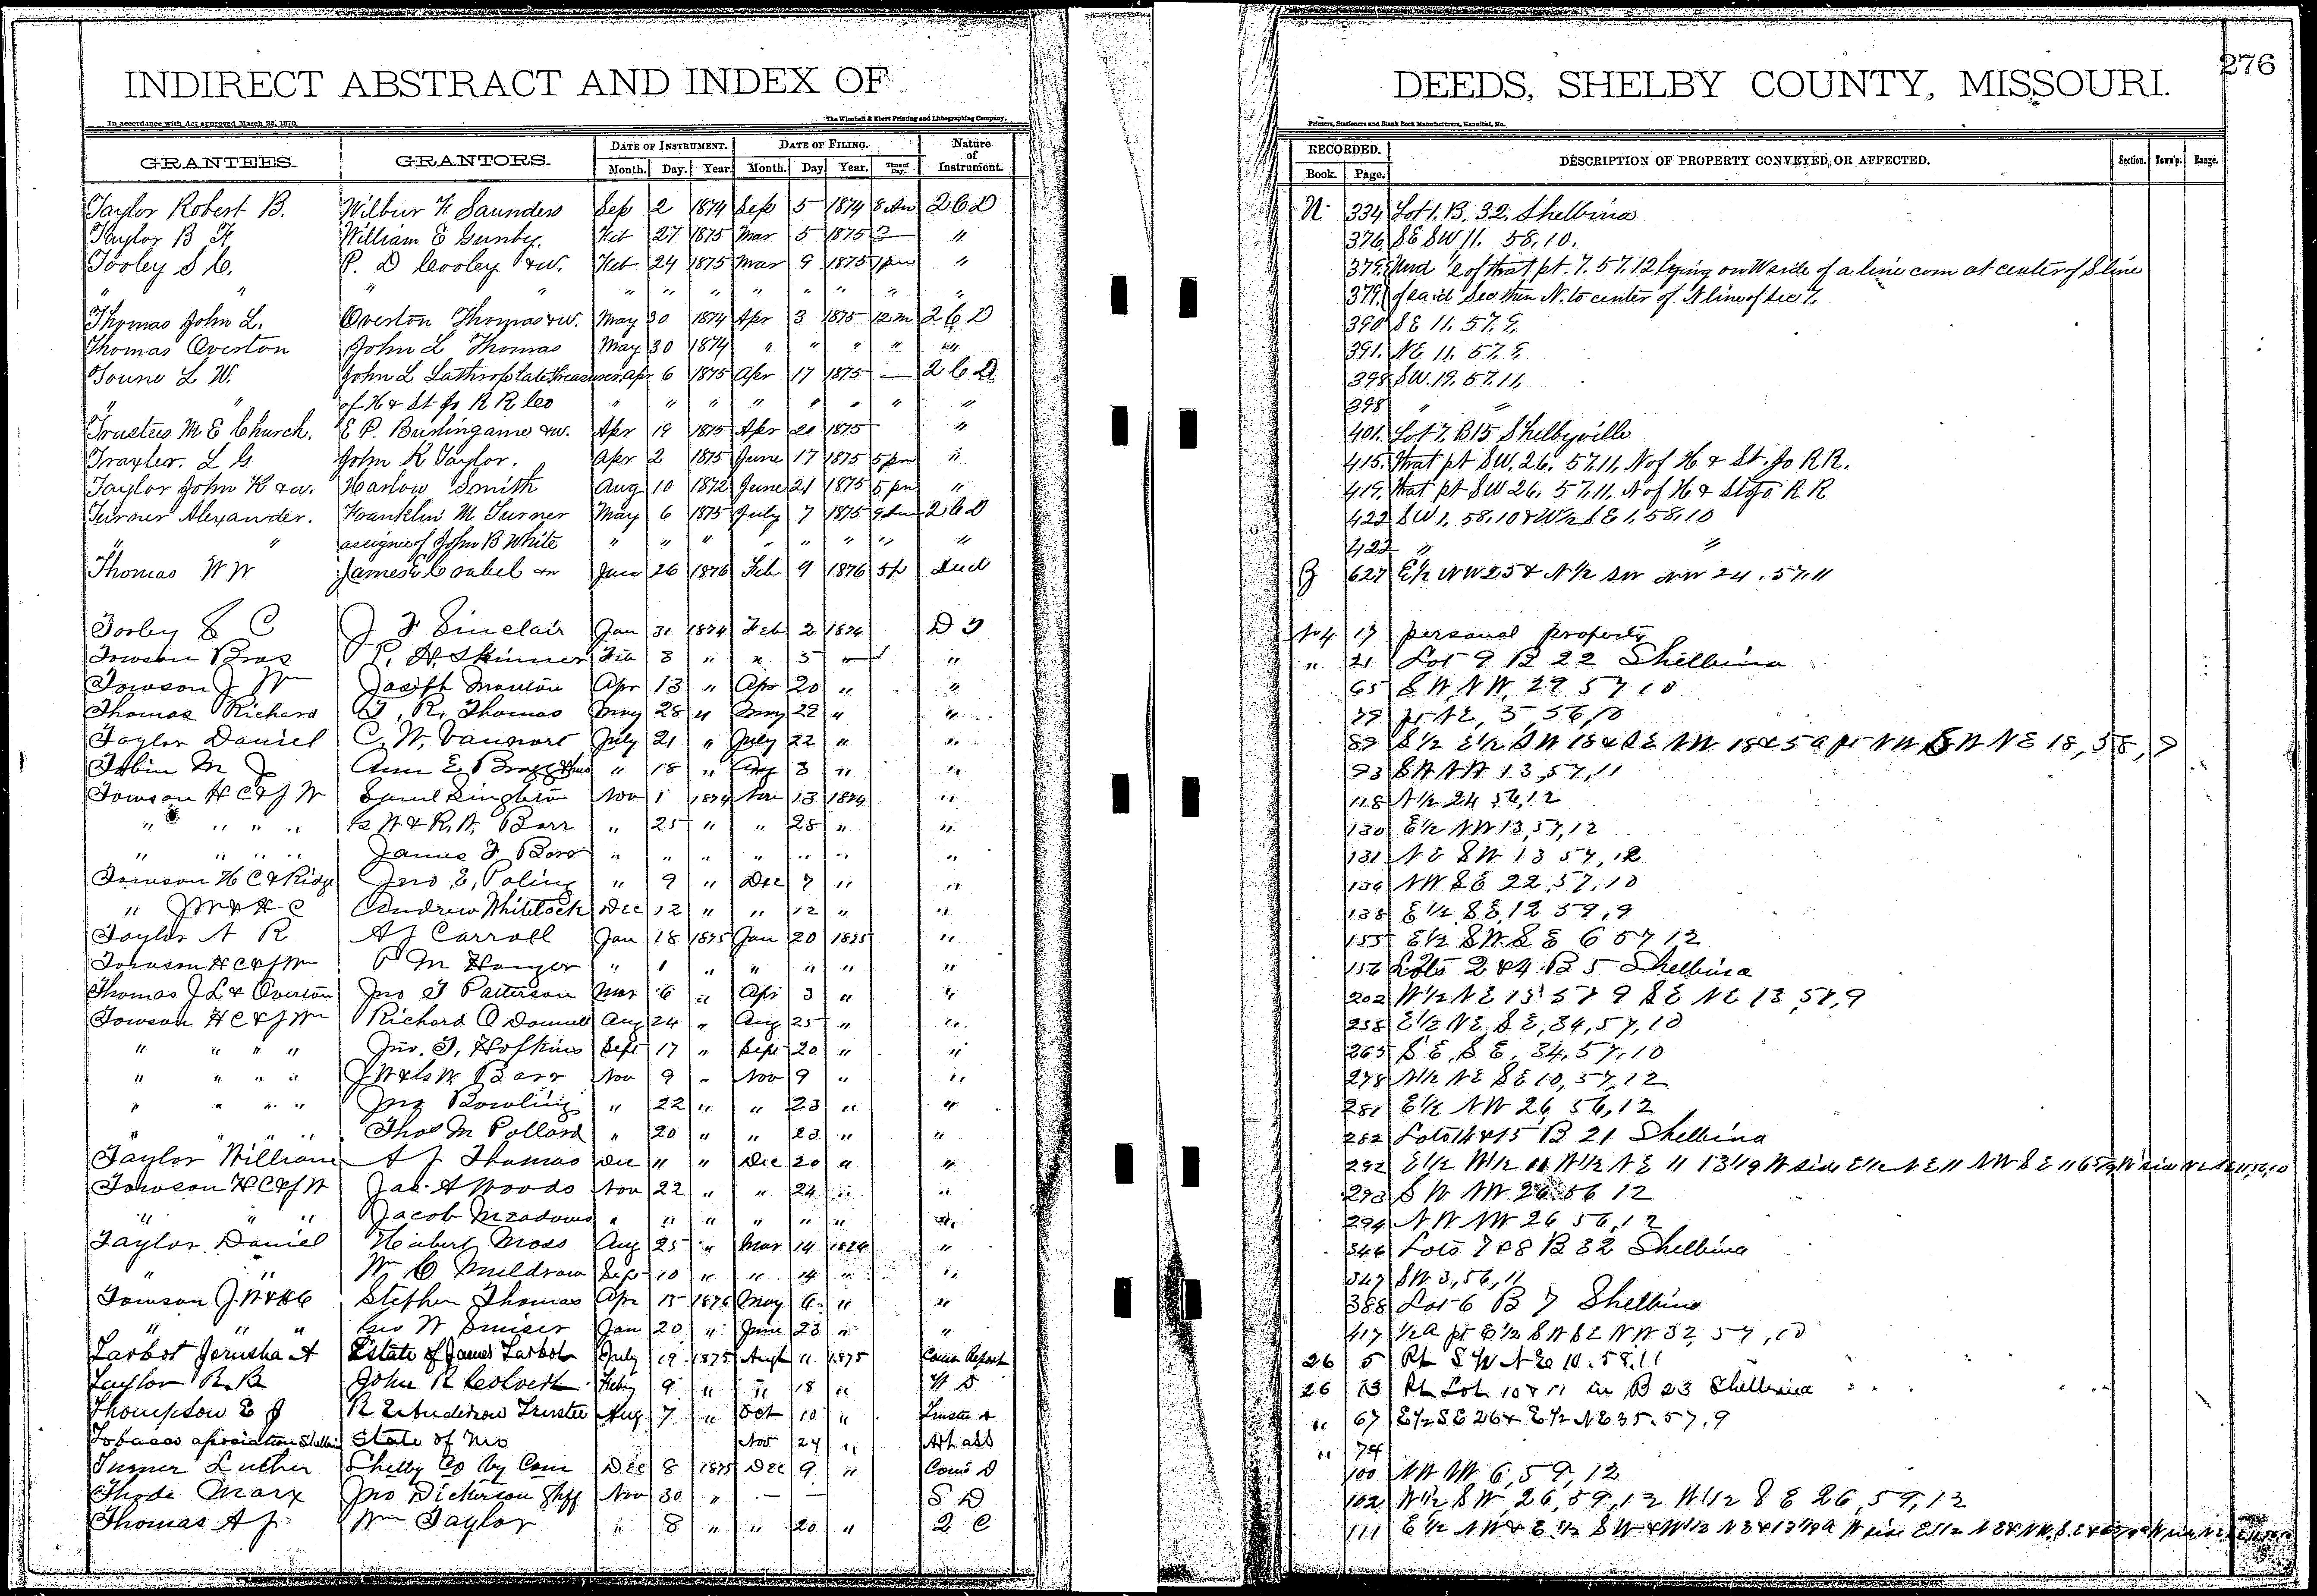 276
INDIRECT ABSTRACT AND INDEX OF DEEDS, SHELBY COUNTY, MISSOURI.
In accordance with Act approved March 25, 1870. The Winchell & Ebert Printing and Lithographing Company, Printers, Stationers and Blank Book Manufacturers, Hannibal, Mo.
GRANTEES. GRANTORS. DATE OF INSTRUMENT. DATE OF FILING. Nature of Instrument. RECORDED. DESCRIPTION OF PROPERTY CONVEYED, OR AFFECTED. Section. Town'p. Range.
Month. Day. Year. Month. Day Year. Time of Day. Book. Page.
Taylor Robert B. Wilbur F Saunders Sep 2 1874 Sep 5 1874 8 Am 2 C D N 334 Lot 1. B. 32. Shelbina
Taylor B F William E Gunby. Feb 27 1875 Mar 5 1875 " 376. SE SW 11. 58. 10.
Tooley S C. P. D Cooley &w. Feb 24 1875 Mar 9 1875 1 pm " 379. Und ½ of that pt. 7. 57. 12 lying on W side of a line com at center of S line
" " " " " " " " " " " " 379. of said Sec then N. to center of N line of Sec 7.
Thomas John L. Overton Thomas &w. May 30 1874 Apr 3 1875 12 m 2 C D 390 SE 11. 57. 9.
Thomas Overton John L Thomas May 30 1874 " " " " " 391. NE 11. 57. 9
Toune L W. John L Lathrop late Treasurer Apr 6 1875 Apr 17 1875 — 2 C D 398 SW. 19. 57. 11,
" " of H & St Jo R R Co " " " " " " " " 398 " "
Trustees M E Church. E P. Burlingame &w. Apr 19 1875 Apr 20 1875 " 401. Lot 7. B 15 Shelbyville
Traxler. L G John R Taylor. Apr 2 1875 June 17 1875 5 pm " 415. that pt SW. 26. 57. 11. N of H & St. Jo R R.
Taylor John R &w. Harlow Smith Aug 10 1872 June 21 1875 5 pm " 419. that pt SW 26. 57. 11. N of H & St Jo R R
Turner Alexander. Franklin M Turner May 6 1875 July 7 1875 9 Am 2 C D 422 SW 1. 58. 10 & W ½ SE 1. 58. 10
" " assignee of John B White " " " " " " " " 422 " "
Thomas W W James E &w Jan 26 1876 Feb 9 1876 5 p Deed 627 E ½ NW 25 & N ½ SW NW 24. 57. 11
Torley S C J F Sinclair Jan 31 1874 Feb 2 1874 D T No 4 17 personal property
Towson Bros P. H. Skinner Feb 3 " " 5 " " " 21 Lot 9 B 22 Shelbina
Towson J Wm Joseph Manton Apr 13 " Apr 20 " " 65 SW, NW, 29 57 10
Thomas Richard T. R. Thomas May 28 " May 29 " " 79 pt NE, 5, 56, 10
Taylor Daniel C. W. Vannort July 21 " July 22 " " 89 S ½ E ½ SW 18 & SE NW 18 & 5 a pt NW SW NE 18, 58, 9
Tobin M J Ann E. Bragg " 18 " Aug 3 " " 93 SW NW 13, 57, 11
Towson H C & J W Saml Singleton Nov 1 1874 Nov 13 1874 " 118 N ½ 24 56, 12
" " " " W & R. W. Barr " 25 " " 28 " " 130 E ½ NW 13, 57, 12
" " " " James F Barr " " " " " " " 131 NE SW 13 57, 12
Towson H C & Ridge Jno. E. Poling " 9 " Dec 7 " " 136 NW SE 22, 57, 10
" J W & H C Andrew Whitlock Dec 12 " " 12 " " 138 E ½ SE, 12 59, 9
Taylor N R A J Carroll Jan 18 1875 Jan 20 1875 " 155 E ½ SW. SE 6 57 12
Towson H C & J Wm P M Hanger " 1 " " " " " 156 Lots 2 & 4 B 5 Shelbina
Thomas J L & Overton Jno T Patterson Mar 6 " Apr 3 " " 202 W ½ NE 13 57 9 SE NE 13, 57, 9
Towson H C & J Wm Richard O Donnell Aug 24 " Aug 25 " " 258 E ½ NE, SE, 34, 57, 10
" " " " Jno. T. Hopkins Sept 17 " Sept 20 " " 265 SE, SE, 34, 57, 10
" " " " J W & W Barr Nov 9 " Nov 9 " " 278 N ½ NE SE 10, 57, 12
" " " " Jno Bowling " 22 " " 23 " " 281 E ½ NW 26, 56, 12
" " " " Thos M Pollard " 20 " " 23 " " 282 Lots 14 & 15 B 21 Shelbina
Taylor William A J Thomas Dec " " Dec 20 " " 292 E ½ W ½ 11 W ½ NE 11 13 1/9 W side E ½ NE 11 NW SE 11
Towson H C & J W Jas. A Woods Nov 22 " " 24 " " 293 SW NW 26 56 12
" " " Jacob Meadows " " " " " " " 294 NW NW 26 56, 12
Taylor Daniel Hubert Moss Aug 25 " Mar 14 " 346 Lots 7 & 8 B 32 Shelbina
" " W C Muldrow Sept 10 " " 14 " " 347 SW 3, 56, 11
Towson J. W & H C Stephen Thomas Apr 15 1876 May 6 " " 388 Lot 6 B 7 Shelbina
" " " Geo W Smiser Jan 20 " June 23 " " 417 ½ a pt E ½ SW SE NW 32, 57, 10
Tarbot Jerusha A Estate of James Tarbot July 19 1875 Augt 11 1875 Com Report 26 5 Pt SW NE 10. 58. 11
Taylor R. B John R Colvert Feby 9 " " 18 " W D 26 13 Pt Lot 10 & 11 in B 23 Shelbina
Thompson E J R E Anderson Trustee Aug 7 " Oct 10 " Trustee D " 67 E ½ SE 26 & E ½ NE 35. 57. 9
Tobacco association Shelbina State of Mo Nov 24 " " 74
Turner Luther Shelby Co by Com Dec 8 1875 Dec 9 " Com D 100 NW NW 6, 59, 12
Thode Marx Jno Dickerson Shff Nov 30 " — — S D 102 W ½ SW, 26, 59, 12 W ½ SE 26, 59, 12
Thomas A J Wm Taylor " 8 " " 20 " 2 C 111 E ½ NW & E ½ SW & W ½ NE & 13 1/9 a W side E ½ NE & NW. SE